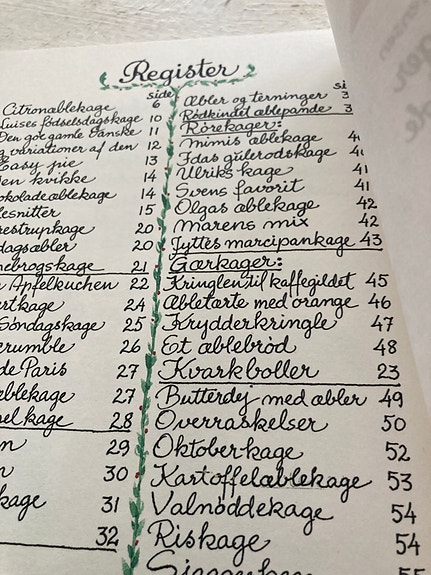 Register
side
Citronæblekage 6
Luises fødselsdagskage 10
Den gode gamle Danske 11
variationer af den 12
Easy pie 13
Den kvikke 14
okoladeæblekage 14
lesnitter 15
restrupkage 20
dagsæbler 20
nebrogskage 21
Apfelkuchen 22
ertkage 24
Søndagskage 25
rumble 26
de Paris 27
æblekage 27
elkage 28
n 29
n 30
kage 31
32
si
Æbler og terninger 3
Rødkindet æblepande 3
Rørekager:
Mimis æblekage 4
Idas gulerodskage 4
Ulriks kage 41
Svens favorit 41
Olgas æblekage 42
Marens mix 42
Jyttes marcipankage 43
Gærkager:
Kringlen til kaffegildet 45
Æbletærte med orange 46
Krydderkringle 47
Et æblebrød 48
Kvarkboller 23
Butterdej med æbler 49
Overraskelser 50
Oktoberkage 52
Kartoffelæblekage 53
Valnøddekage 54
Riskage 54
55